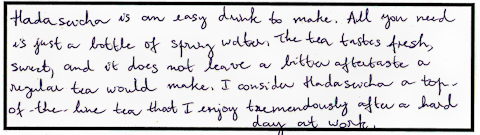 Hadasevcha is an easy drink to make. All you need
is just a bottle of spring water. The tea tastes fresh,
sweet, and it does not leave a bitter aftertaste a
regular tea would make. I consider Hadasevcha a top-
of-the-line tea that I enjoy tremendously after a hard
day at work.